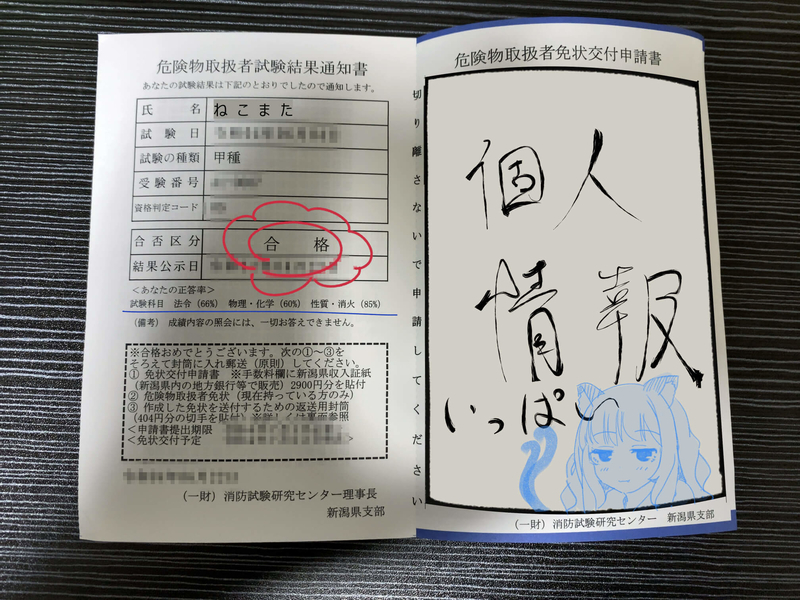 危険物取扱者試験結果通知書
あなたの試験結果は下記のとおりでしたので通知します。
氏 名 ねこまた
試験日
試験の種類 甲種
受験番号
資格判定コード
合否区分 合 格
結果公示日
<あなたの正答率>
試験科目 法令(66%) 物理・化学(60%) 性質・消火(85%)
(備考) 成績内容の照会には、一切お答えできません。
※合格おめでとうございます。次の①~③を
そろえて封筒に入れ郵送(原則)してください。
① 免状交付申請書 ※手数料欄に新潟県収入証紙
(新潟県内の地方銀行等で販売)2900円分を貼付
② 危険物取扱者免状(現在持っている方のみ)
③ 作成した免状を送付するための返送用封筒
(404円分の切手を貼付)※詳しくは裏面参照
<申請書提出期限
<免状交付予定 >
(一財)消防試験研究センター理事長
新潟県支部
切り離さないで申請してください
危険物取扱者免状交付申請書
個人
情報
いっぱい
(一財)消防試験研究センター 新潟県支部